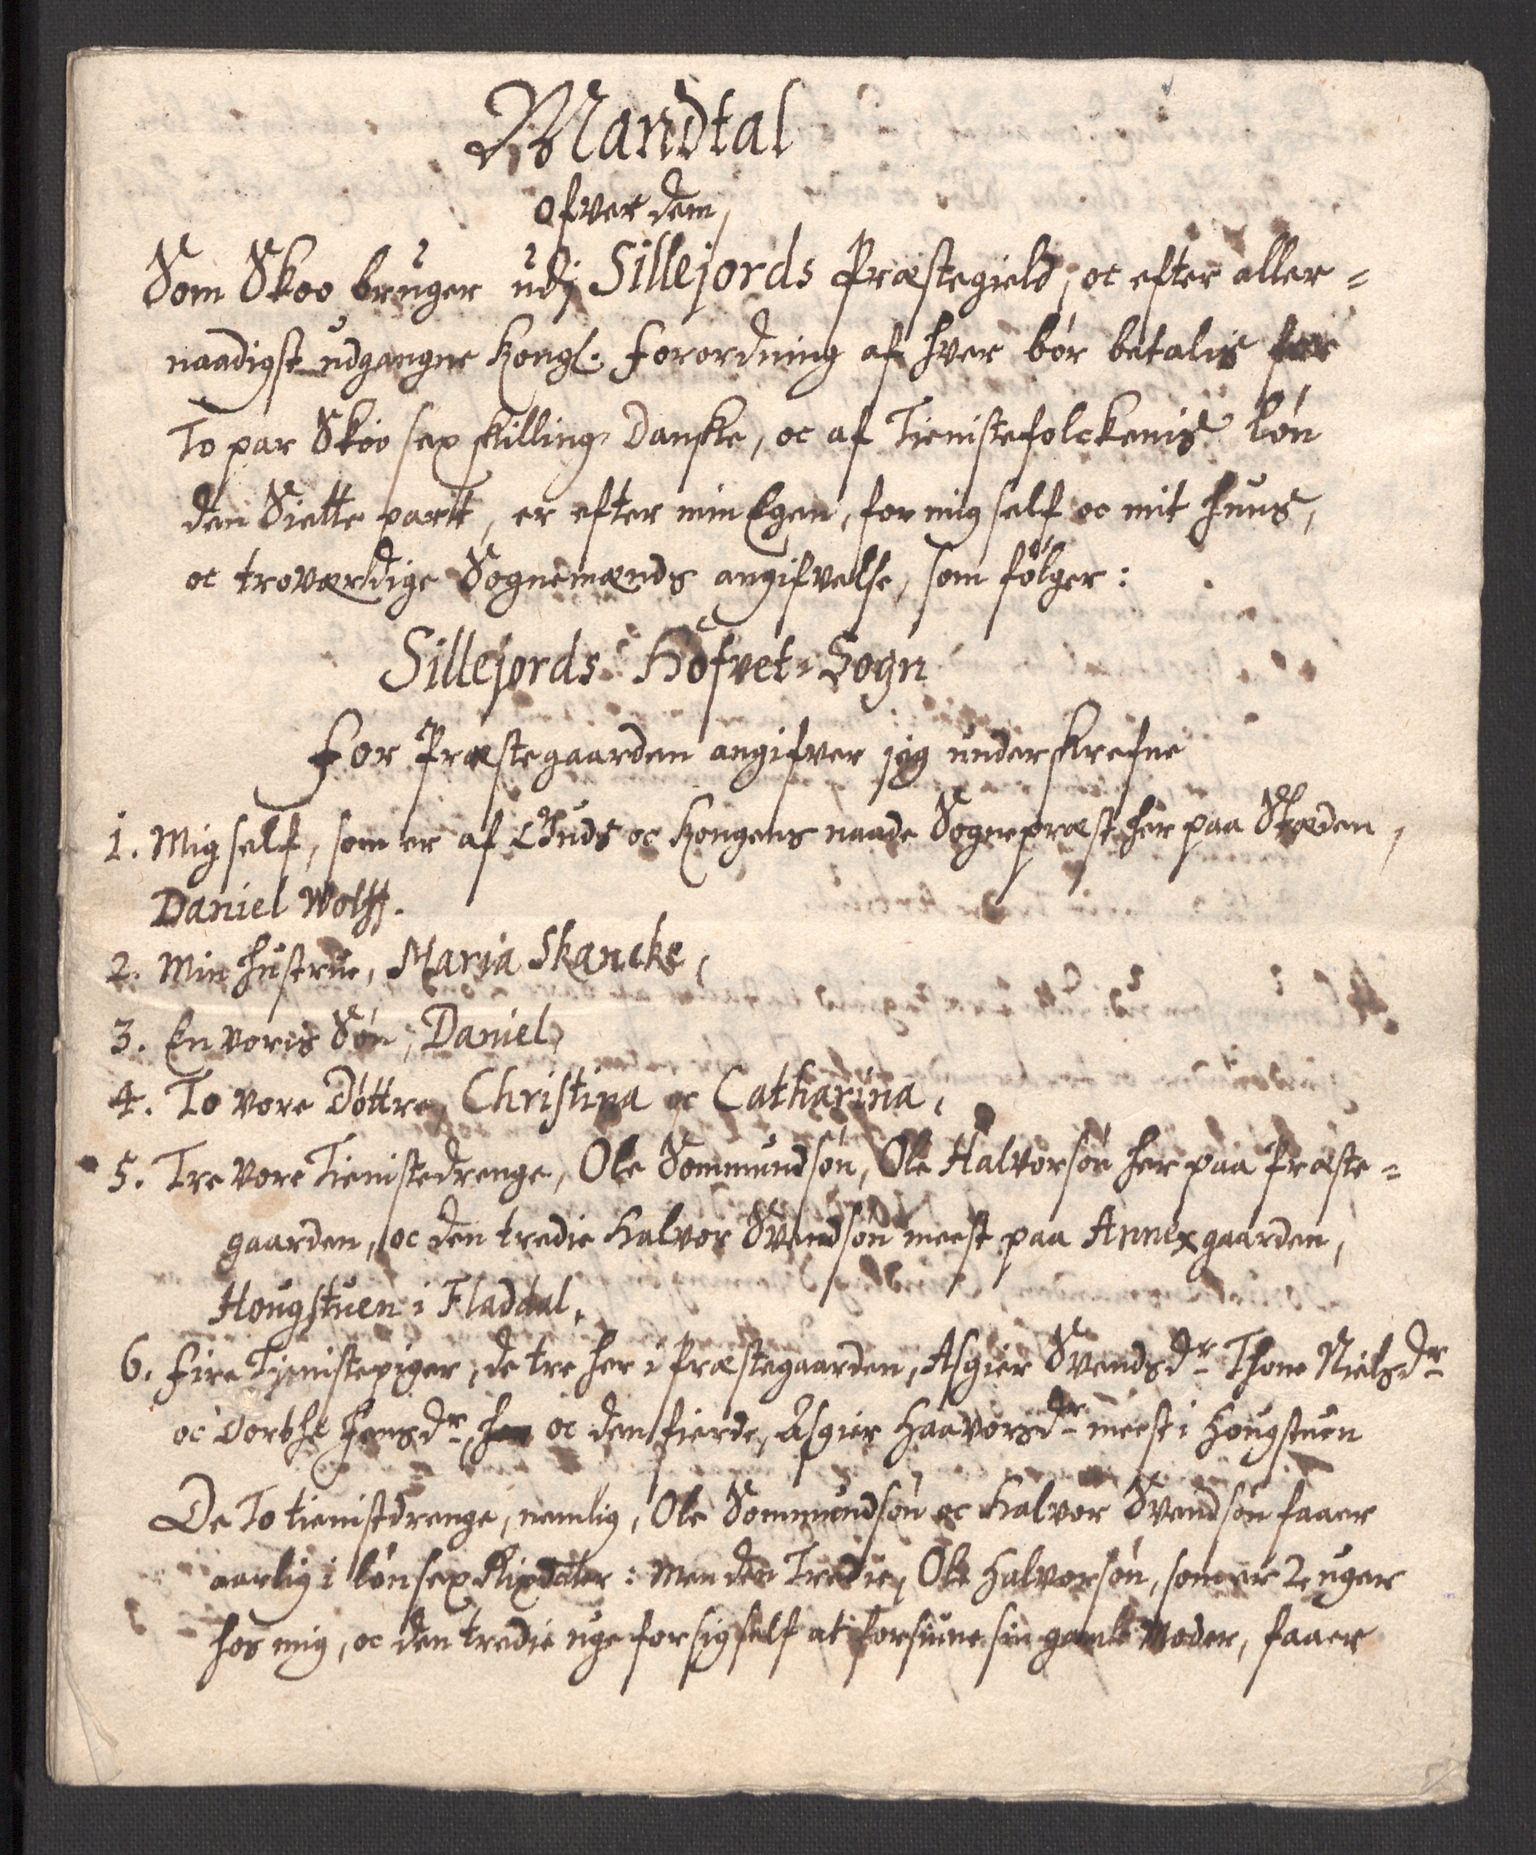 Mandtal
ofver dem,
Som Skoo bruger udj Sillejords Præstegield, oc efter aller-
naadigst udgangne Kongl. Forordning af hver bør betalis for
To par Skoo sex skilling Danske, oc af Tienistefolckenis løn
den Siette part, er efter min Egen, for mig self oc mit huus,
oc troværdige Sognemænds angifvelse, som følger:
Sillejords Hofvet-Sogn
For Præstegaarden angifver jeg underskrefne
1. Mig self, som er af Guds oc Kongens naade Sognepræst her paa Stæden,
Daniel Wolff.
2. Min hustrue, Maria Skancke,
3. En voris Søn, Daniel,
4. To vore Døttre, Christina oc Catharina,
5. Tre vore Tienistedrenge, Ole Sommundsøn, Ole Halvorsøn her paa Præste-
gaarden, oc den tredie Halvor Svendsøn meest paa Annexgaarden,
Hougstuen i Fladdal.
6. Fire Tienistepiger, de tre her i Præstegaarden, Asgier Svendsdr Thone Nielsdr
oc Dorthe Jensdr, her oc den fierde, Asgier Haavorsdr meest i Hougstuen
De To tienistdrenge, nemlig, Ole Sommundsøn oc Halvor Svendsøn faaer
aarlig i løn sex Rixdaler: Men den Tredie, Ole Halvorsøn, som er 2 uger
hos mig, oc den tredie uge for sig self at forsiune sin gamle Moder, faaer